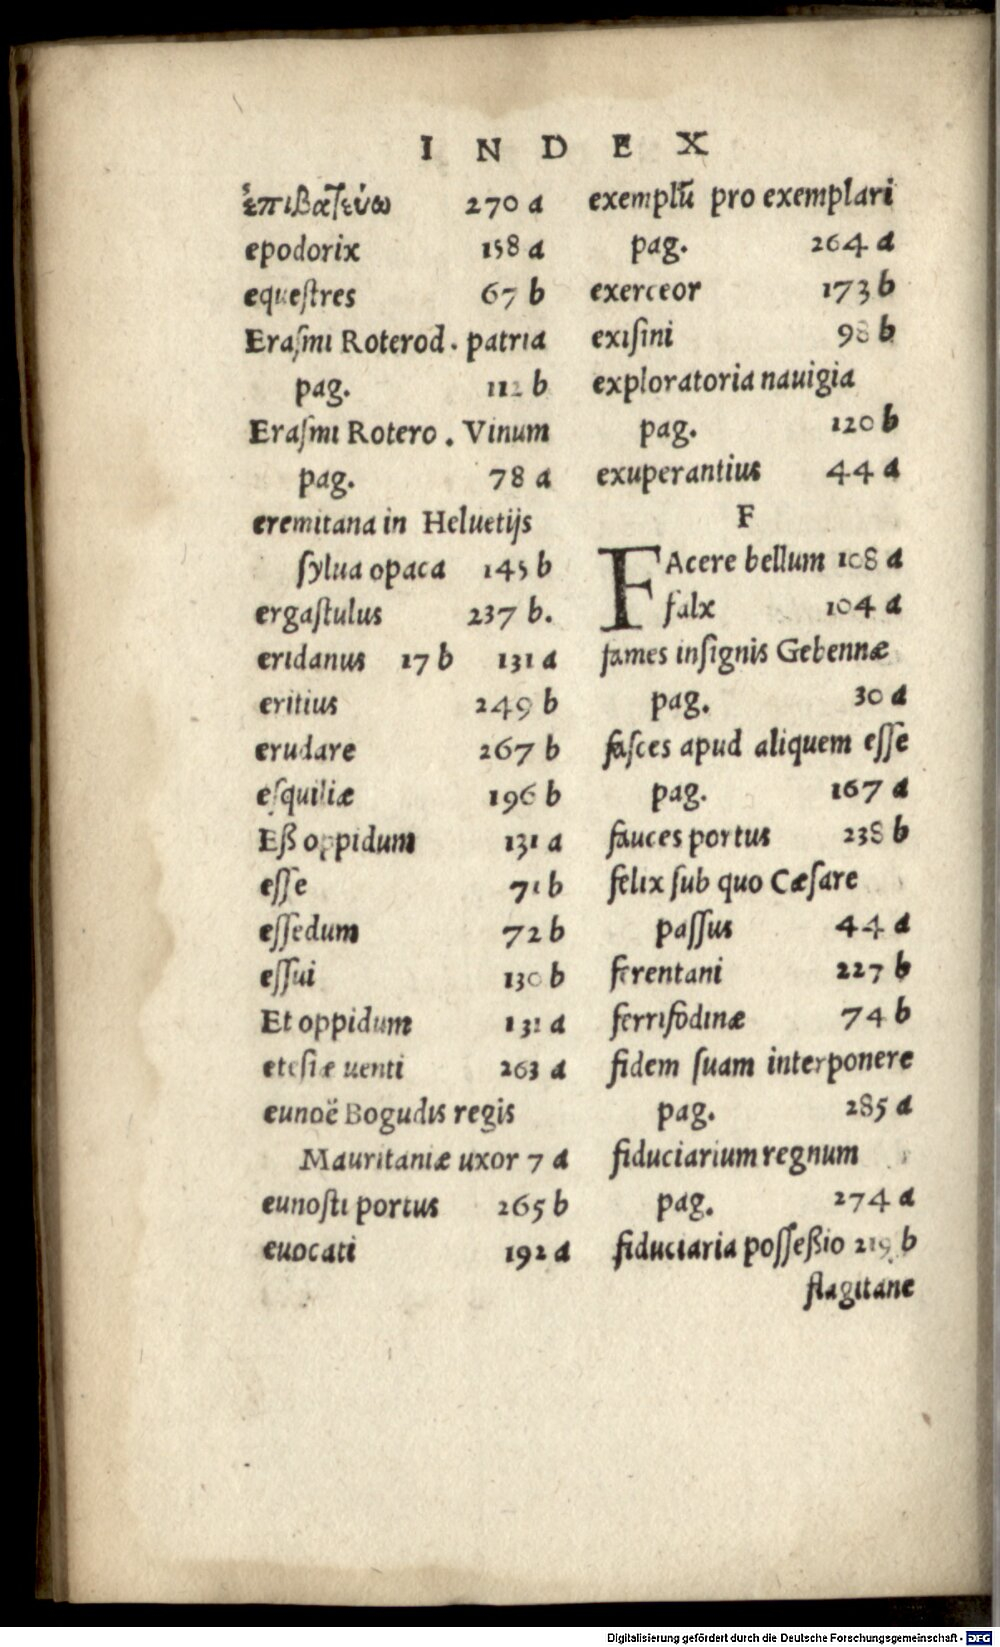 INDEX
ἐπιβατεύω 270 a
epodorix 158 a
equeſtres 67 b
Eraſmi Roterod. patria
pag. 112 b
Eraſmi Rotero. Vinum
pag. 78 a
eremitana in Heluetijs
ſylua opaca 145 b
ergaſtulus 237 b.
eridanus 17 b 131 a
eritius 249 b
erudare 267 b
eſquiliæ 196 b
Eß oppidum 131 a
eſſe 71 b
eſſedum 72 b
eſſui 130 b
Et oppidum 131 a
eteſiæ uenti 263 a
eunoë Bogudis regis
Mauritaniæ uxor 7 a
eunoſti portus 265 b
euocati 192 a
exemplū pro exemplari
pag. 264 a
exerceor 173 b
exiſini 98 b
exploratoria nauigia
pag. 120 b
exuperantius 44 a
F
FAcere bellum 108 a
falx 104 a
fames inſignis Gebennæ
pag. 30 a
faſces apud aliquem eſſe
pag. 167 a
fauces portus 238 b
felix ſub quo Cæſare
paſſus 44 a
ferentani 227 b
ferrifodinæ 74 b
fidem ſuam interponere
pag. 285 a
fiduciarium regnum
pag. 274 a
fiduciaria poſſeßio 219 b
flagitane
Digitalisierung gefördert durch die Deutsche Forschungsgemeinschaft - DFG